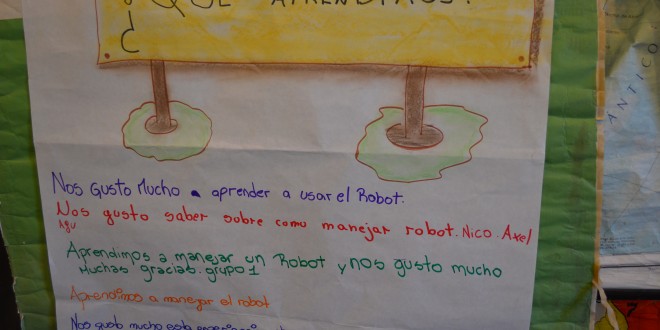 ¿QUE APRENDIMOS?
Nos Gusto Mucho aprender a usar el Robot.
Nos gusto saber sobre como manejar robot. Nico. Axel
Agu
Aprendimos a manejar un Robot y nos gusto mucho
Muchas gracias. grupo 1
Aprendimos a manejar el robot
Nos gusto mucho esta
ANTICO
7